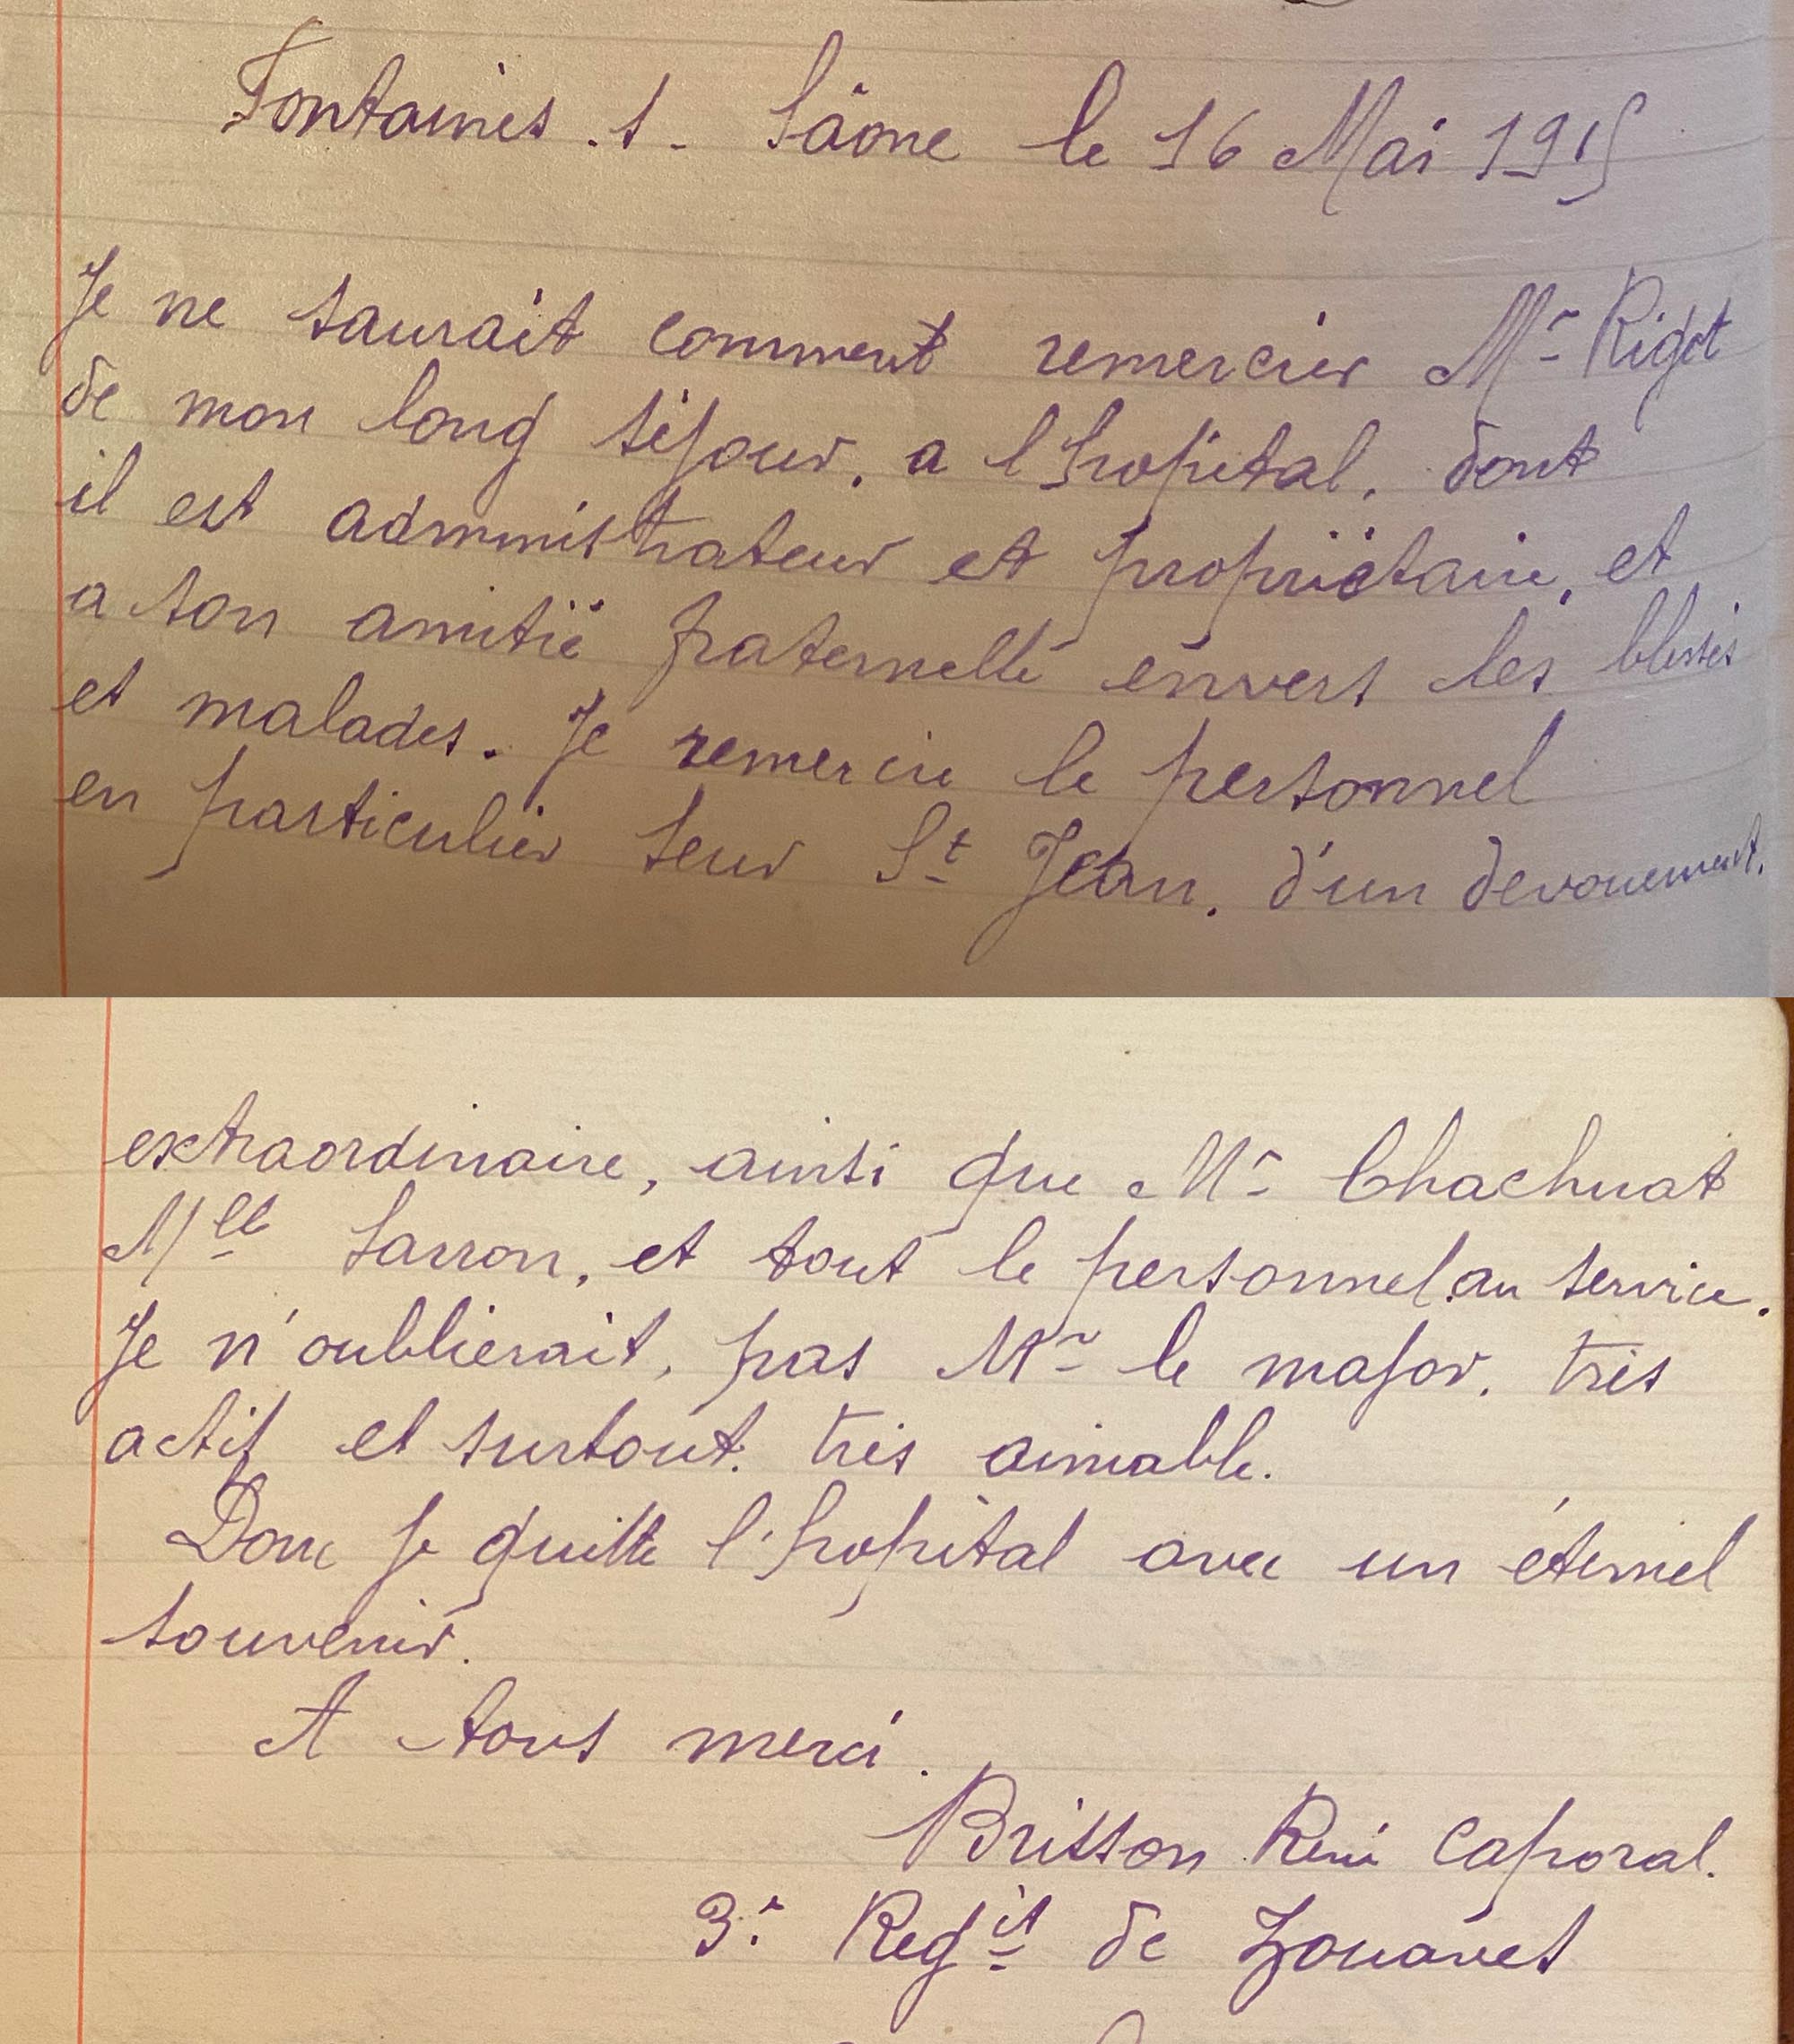 Fontaines .s. Sâone le 16 Mai 1915
Je ne saurait comment remercier Mr Rigot
de mon long séjour, a l'hopital, dont
il est administrateur et propriétaire, et
a son amitié fraternelle envers les blessés
et malades. Je remercie le personnel
en particulier seur St Jean, d'un devouement.
extraordinaire, ainsi que Mr Chachuat
Mlle Sarron, et tout le personnel au service.
Je n'oublierait, pas Mr le major, très
actif et surtout. très aimable.
Donc je quitte l'hopital avec un éternel
souvenir.
A tous merci.
Brisson René Caporal.
3e Regit de Zouaves